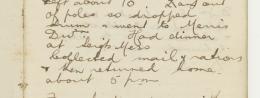 left about 10 Ran out
of poles so dropped
drum & went to Merris
Divⁿˢ Had dinner
at Sergts Mess
Collected mail & rations
& then returned home
about 5 pm